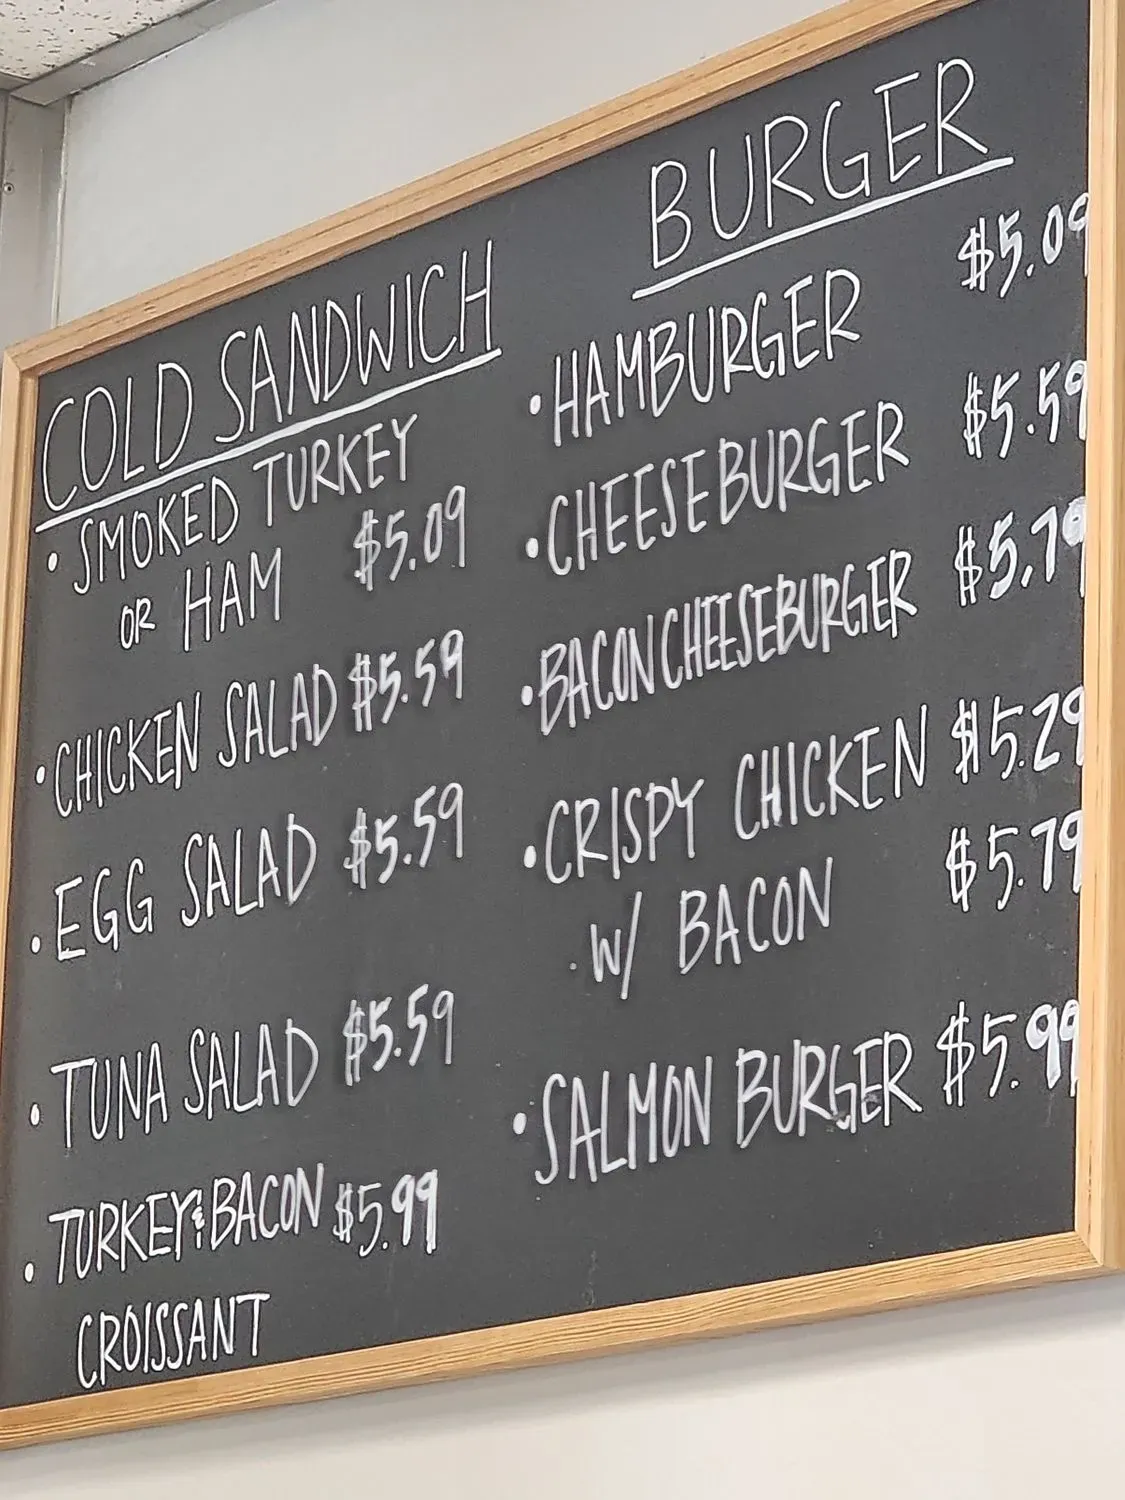 COLD SANDWICH
• SMOKED TURKEY
OR HAM $5.09
• CHICKEN SALAD $5.59
• EGG SALAD $5.59
• TUNA SALAD $5.59
• TURKEY & BACON $5.99
CROISSANT
BURGER
• HAMBURGER $5.09
• CHEESEBURGER $5.59
• BACON CHEESEBURGER $5.79
• CRISPY CHICKEN $5.29
• W/ BACON $5.79
• SALMON BURGER $5.99